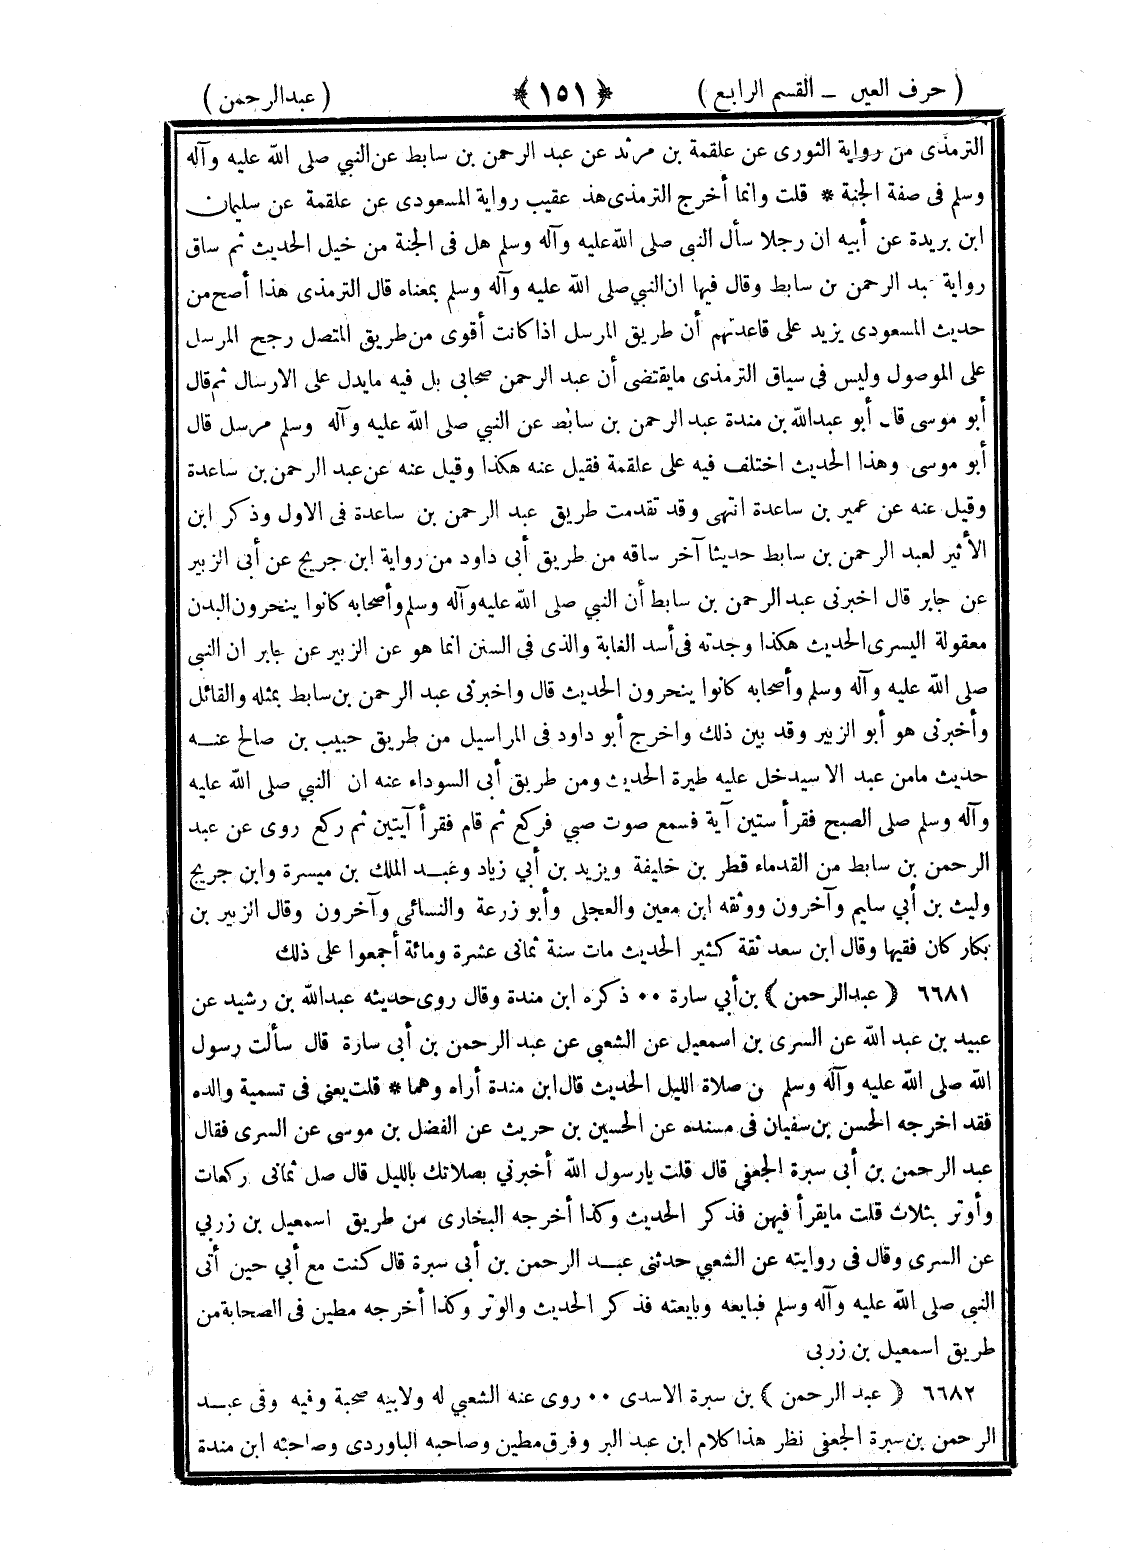 ( حرف العين ــ القسم الرابع ) ﴿ ١٥١ ﴾ ( عبدالرحمن )
الترمذى من رواية الثورى عن علقمة بن مرثد عن عبد الرحمن بن سابط عن النبي صلى الله عليه وآله
وسلم فى صفة الجنة * قلت وانما أخرج الترمذى هذ عقيب رواية المسعودى عن علقمة عن سليمان
ابن بريدة عن أبيه ان رجلا سأل النبي صلى الله عليه وآله وسلم هل فى الجنة من خيل الحديث ثم ساق
رواية بد الرحمن بن سابط وقال فيها ان النبي صلى الله عليه وآله وسلم بمعناه قال الترمذى هذا أصح من
حديث المسعودى يزيد على قاعدتهم أن طريق المرسل اذا كانت أقوى من طريق المتصل رجح المرسل
على الموصول وليس فى سياق الترمذى مايقتضى أن عبد الرحمن صحابى بل فيه مايدل على الارسال ثم قال
أبو موسى قال أبو عبدالله بن مندة عبد الرحمن بن سابط عن النبي صلى الله عليه وآله وسلم مرسل قال
أبو موسى وهذا الحديث اختلف فيه على علقمة فقيل عنه هكذا وقيل عنه عن عبد الرحمن بن ساعدة
وقيل عنه عن عمير بن ساعدة انتهى وقد تقدمت طريق عبد الرحمن بن ساعدة فى الاول وذكر ابن
الأثير لعبد الرحمن بن سابط حديثا آخر ساقه من طريق أبى داود من رواية ابن جريج عن أبى الزبير
عن جابر قال اخبرنى عبد الرحمن بن سابط أن النبي صلى الله عليه وآله وسلم وأصحابه كانوا ينحرون البدن
معقولة اليسرى الحديث هكذا وجدته فى أسد الغابة والذى فى السنن انما هو عن الزبير عن جابر ان النبى
صلى الله عليه وآله وسلم وأصحابه كانوا ينحرون الحديث قال واخبرنى عبد الرحمن بن سابط بمثله والقائل
وأخبرنى هو أبو الزبير وقد بين ذلك واخرج أبو داود فى المراسيل من طريق حبيب بن صالح عنـــه
حديث مامن عبد الا سيدخل عليه طيرة الحديث ومن طريق أبى السوداء عنه ان النبي صلى الله عليه
وآله وسلم صلى الصبح فقرأ ستين آية فسمع صوت صبي فركع ثم قام فقرأ آيتين ثم ركع روى عن عبد
الرحمن بن سابط من القدماء قطر بن خليفة ويزيد بن أبي زياد وعبـــد الملك بن ميسرة وابن جريج
وليث بن أبي سليم وآخرون ووثقه ابن معين والعجلى وأبو زرعة والنسائى وآخرون وقال الزبير بن
بكار كان فقيها وقال ابن سعد ثقة كثير الحديث مات سنة ثمانى عشرة ومائة أجمعوا على ذلك
٦٦٨١ ﴿ عبدالرحمن ﴾ بن أبي سارة ٠٠ ذكره ابن مندة وقال روى حديثه عبدالله بن رشيد عن
عبيد بن عبد الله عن السرى بن اسمعيل عن الشعبى عن عبد الرحمن بن أبى سارة قال سألت رسول
الله صلى الله عليه وآله وسلم ن صلاة الليل الحديث قال ابن مندة أراه وهما * قلت يعنى فى تسمية والده
فقد اخرجه الحسن بن سفيان فى مسنده عن الحسين بن حريث عن الفضل بن موسى عن السرى فقال
عبد الرحمن بن أبى سبرة الجعفي قال قلت يارسول الله أخبرني بصلاتك بالليل قال صل ثمانى ركعات
وأوتر بثلاث قلت مايقرأ فيهن فذكر الحديث وكذا أخرجه البخارى من طريق اسمعيل بن زربي
عن السرى وقال فى روايته عن الشعبي حدثنى عبـــد الرحمن بن أبى سبرة قال كنت مع أبي حين أتى
النبى صلى الله عليه وآله وسلم فبايعه وبايعته فذكر الحديث والوتر وكذا أخرجه مطين فى الصحابة من
طريق اسمعيل بن زربى
٦٦٨٢ ﴿ عبد الرحمن ﴾ بن سبرة الاسدى ٠٠ روى عنه الشعبي له ولابيه صحبة وفيه وفى عبـــد
الرحمن بن سبرة الجعفى نظر هذا كلام ابن عبد البر وفرق مطين وصاحبه الباوردى وصاحبه ابن مندة